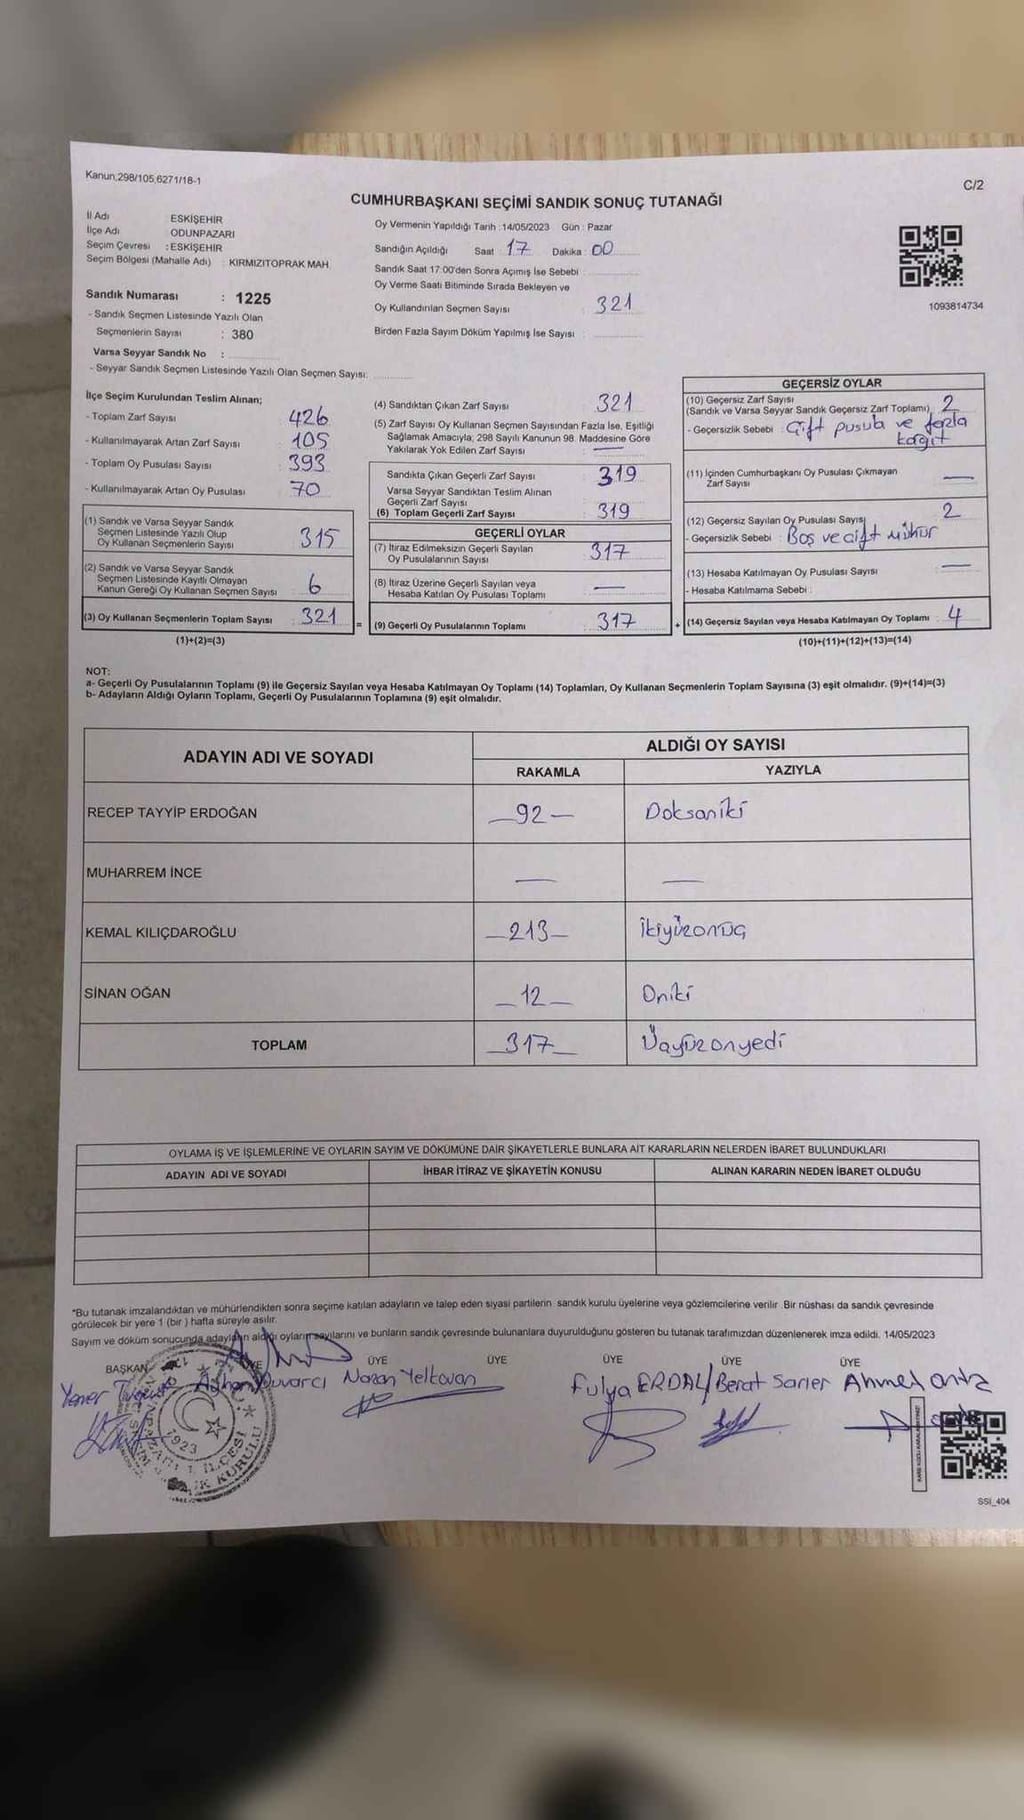 Kanun,298/105,6271/18-1
C/2
CUMHURBAŞKANI SEÇİMİ SANDIK SONUÇ TUTANAĞI
İl Adı ESKİŞEHİR
İlçe Adı ODUNPAZARI
Seçim Çevresi : ESKİŞEHİR
Seçim Bölgesi (Mahalle Adı) : KIRMIZITOPRAK MAH.
Sandık Numarası : 1225
- Sandık Seçmen Listesinde Yazılı Olan
Seçmenlerin Sayısı : 380
Varsa Seyyar Sandık No :
- Seyyar Sandık Seçmen Listesinde Yazılı Olan Seçmen Sayısı:
Oy Vermenin Yapıldığı Tarih : 14/05/2023 Gün : Pazar
Sandığın Açıldığı Saat : 17 Dakika : 00
Sandık Saat 17:00'den Sonra Açımış İse Sebebi :
Oy Verme Saati Bitiminde Sırada Bekleyen ve
Oy Kullandırılan Seçmen Sayısı : 321
Birden Fazla Sayım Döküm Yapılmış İse Sayısı :
1093814734
İlçe Seçim Kurulundan Teslim Alınan;
- Toplam Zarf Sayısı 426
- Kullanılmayarak Artan Zarf Sayısı 105
- Toplam Oy Pusulası Sayısı 393
- Kullanılmayarak Artan Oy Pusulası 70
(1) Sandık ve Varsa Seyyar Sandık
Seçmen Listesinde Yazılı Olup
Oy Kullanan Seçmenlerin Sayısı 315
(2) Sandık ve Varsa Seyyar Sandık
Seçmen Listesinde Kayıtlı Olmayan
Kanun Gereği Oy Kullanan Seçmen Sayısı 6
(3) Oy Kullanan Seçmenlerin Toplam Sayısı 321 =
(1)+(2)=(3)
(4) Sandıktan Çıkan Zarf Sayısı 321
(5) Zarf Sayısı Oy Kullanan Seçmen Sayısından Fazla İse, Eşitliği
Sağlamak Amacıyla; 298 Sayılı Kanunun 98. Maddesine Göre
Yakılarak Yok Edilen Zarf Sayısı —
Sandıkta Çıkan Geçerli Zarf Sayısı 319
Varsa Seyyar Sandıktan Teslim Alınan
Geçerli Zarf Sayısı
(6) Toplam Geçerli Zarf Sayısı 319
GEÇERLİ OYLAR
(7) İtiraz Edilmeksizin Geçerli Sayılan
Oy Pusulalarının Sayısı 317
(8) İtiraz Üzerine Geçerli Sayılan veya
Hesaba Katılan Oy Pusulası Toplamı —
(9) Geçerli Oy Pusulalarının Toplamı 317 +
GEÇERSİZ OYLAR
(10) Geçersiz Zarf Sayısı
(Sandık ve Varsa Seyyar Sandık Geçersiz Zarf Toplamı) 2
- Geçersizlik Sebebi : Çift pusula ve fazla
kağıt
(11) İçinden Cumhurbaşkanı Oy Pusulası Çıkmayan
Zarf Sayısı —
(12) Geçersiz Sayılan Oy Pusulası Sayısı 2
- Geçersizlik Sebebi : Boş ve çift mühür
(13) Hesaba Katılmayan Oy Pusulası Sayısı —
- Hesaba Katılmama Sebebi :
(14) Geçersiz Sayılan veya Hesaba Katılmayan Oy Toplamı 4
(10)+(11)+(12)+(13)=(14)
NOT:
a- Geçerli Oy Pusulalarının Toplamı (9) ile Geçersiz Sayılan veya Hesaba Katılmayan Oy Toplamı (14) Toplamları, Oy Kullanan Seçmenlerin Toplam Sayısına (3) eşit olmalıdır. (9)+(14)=(3)
b- Adayların Aldığı Oyların Toplamı, Geçerli Oy Pusulalarının Toplamına (9) eşit olmalıdır.
ADAYIN ADI VE SOYADI
ALDIĞI OY SAYISI
RAKAMLA YAZIYLA
RECEP TAYYİP ERDOĞAN —92— Doksaniki
MUHARREM İNCE — —
KEMAL KILIÇDAROĞLU —213— İkiyüzonüç
SİNAN OĞAN —12— Oniki
TOPLAM —317— Üçyüzonyedi
OYLAMA İŞ VE İŞLEMLERİNE VE OYLARIN SAYIM VE DÖKÜMÜNE DAİR ŞİKAYETLERLE BUNLARA AİT KARARLARIN NELERDEN İBARET BULUNDUKLARI
ADAYIN ADI VE SOYADI İHBAR İTİRAZ VE ŞİKAYETİN KONUSU ALINAN KARARIN NEDEN İBARET OLDUĞU
*Bu tutanak imzalandıktan ve mühürlendikten sonra seçime katılan adayların ve talep eden siyasi partilerin sandık kurulu üyelerine veya gözlemcilerine verilir. Bir nüshası da sandık çevresinde
görülecek bir yere 1 (bir) hafta süreyle asılır.
Sayım ve döküm sonucunda adayların aldığı oyların sayılarını ve bunların sandık çevresinde bulunanlara duyurulduğunu gösteren bu tutanak tarafımızdan düzenlenerek imza edildi. 14/05/2023
BAŞKAN ÜYE ÜYE ÜYE ÜYE ÜYE ÜYE
Yener Ayhan Duvarcı Nazan Yelkovan Fulya ERDAL Berat Sarıer Ahmet
1923
İLÇESİ
KURULU
SSİ_404